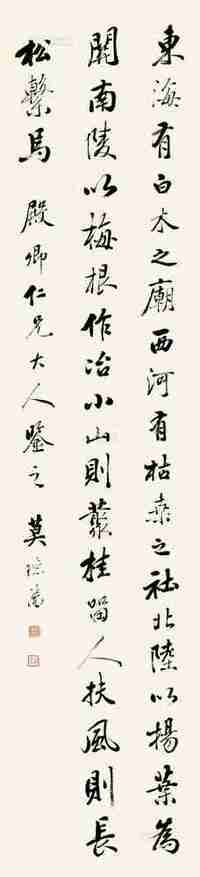 東海有白木之廟西河有枯桑之社北陸以楊葉為
關南陵以梅根作冶小山則叢桂留人扶風則長
松繫馬 殿卿仁兄大人鑒之 莫